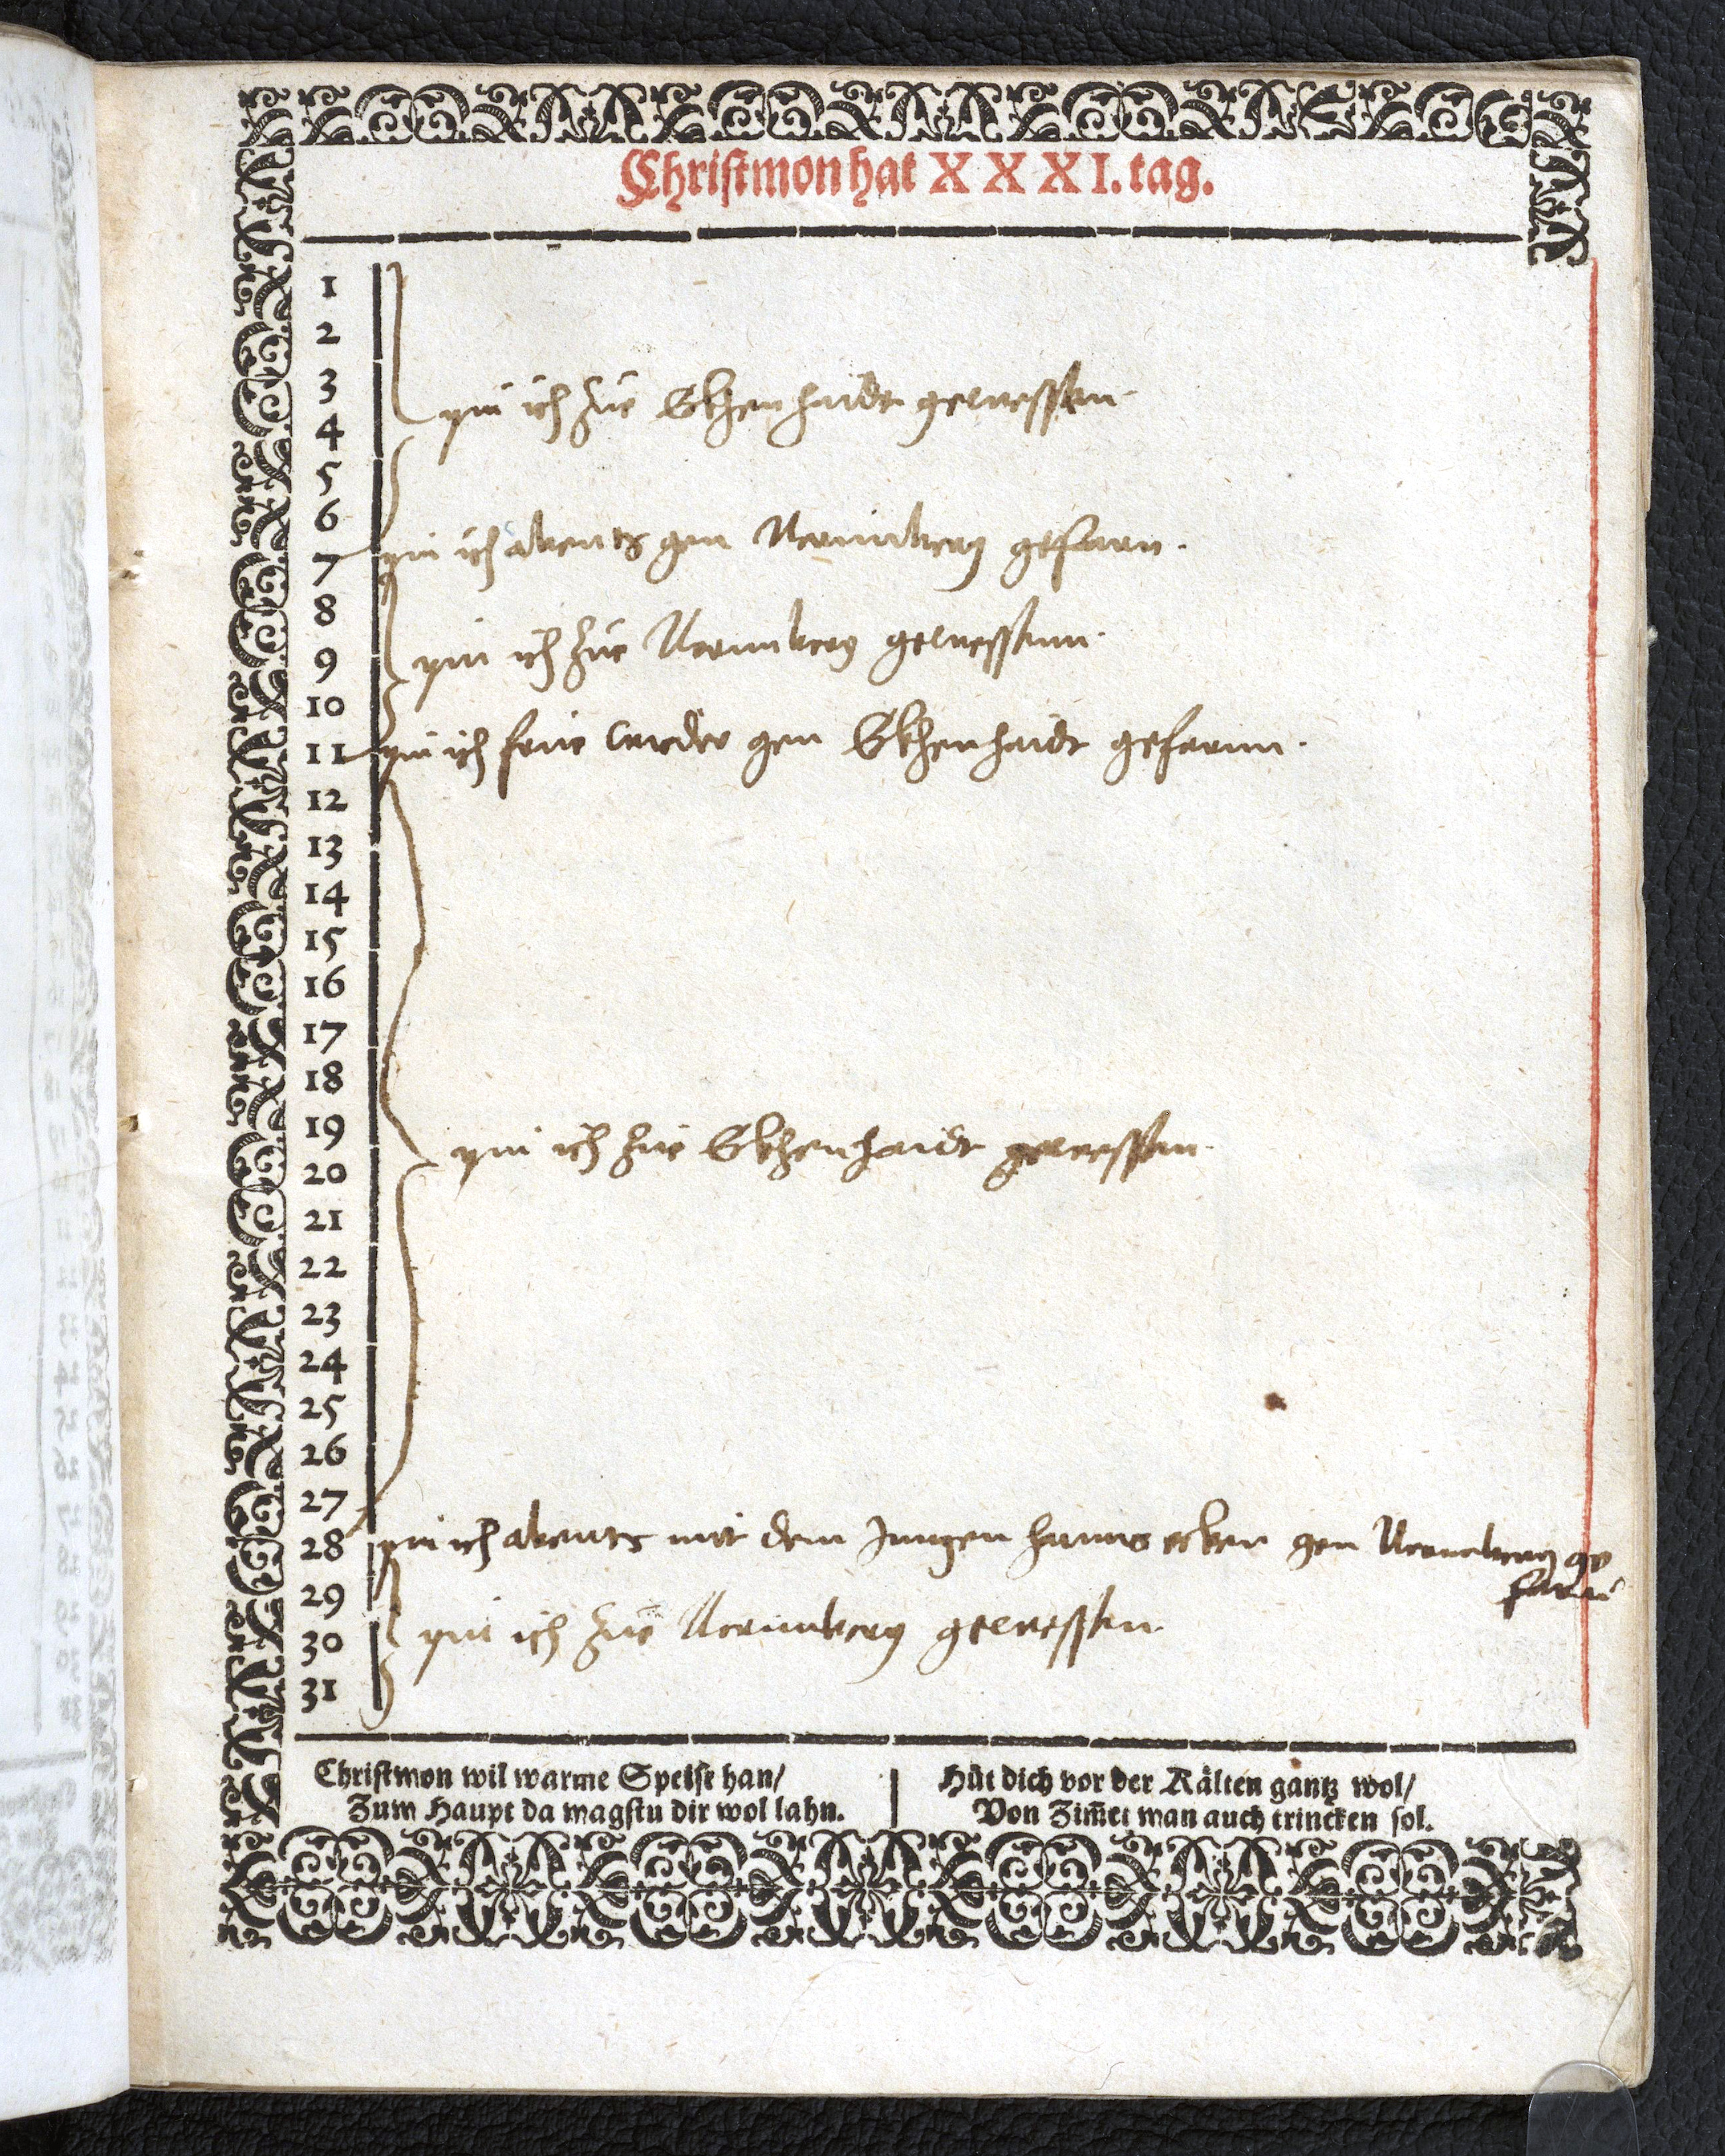 Christmon hat XXXI. tag.
1
2
3
pin ich zue Ekhenhaidt gewessen.
4
5
6
7 pin ich abents gen Nermberg gefarn.
8
9 pin ich zue Nermberg gewessenn.
10
11 pin ich frue wieder gen Ekhenhaidt gefarnn.
12
13
14
15
16
17
18
19
pin ich zue Ekhenhaidt gewessen.
20
21
22
23
24
25
26
27
28 pin ich abents mit dem Jungen hanns gen Nermberg ge
farn
29
pin ich zue Nermberg gewessen.
30
31
Christmon wil warme Speise han/
Zum Haupt da magstu dir wol lahn.
Hüt dich vor der Kälten gantz wol/
Von Zim̃et man auch trincken sol.